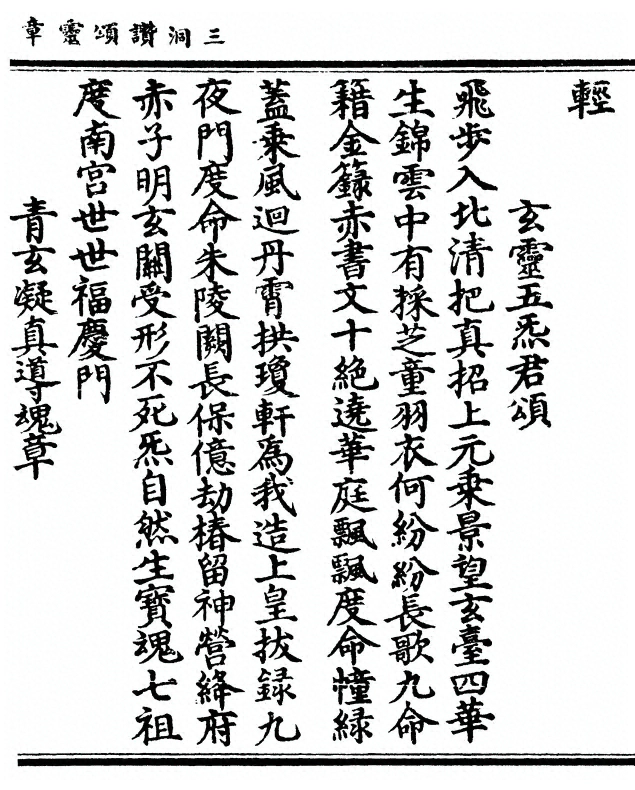 三洞讚頌靈章
輕
玄靈五炁君頌
飛步入北清把真招上元乗景望玄臺四華
生錦雲中有採芝童羽衣何紛紛長歌九命
籍金籙赤書文十絶遶華庭飄飄度命幢緑
蓋乗風迴丹霄拱瓊軒爲我造上皇拔録九
夜門度命朱陵闕長保億劫椿留神營絳府
赤子明玄關受形不死炁自然生寶魂七祖
度南宫世世福慶門
青玄凝真導魂章